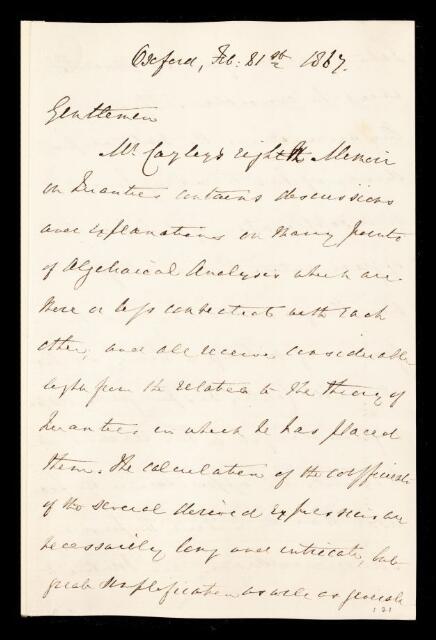 Oxford, Feb: 21st 1867.
Gentlemen
Mr. Cayley's eighth Memoir
on Quantics contains discussions
and explanations on many points
of Algebraical Analysis which are
more or less connected with each
other, and all receive considerable
light from the relation to the theory of
Quantics in which he has placed
them. The calculation of the coefficients
of the several derived expressions are
necessarily long and intricate, but
great simplification as well as generali
121